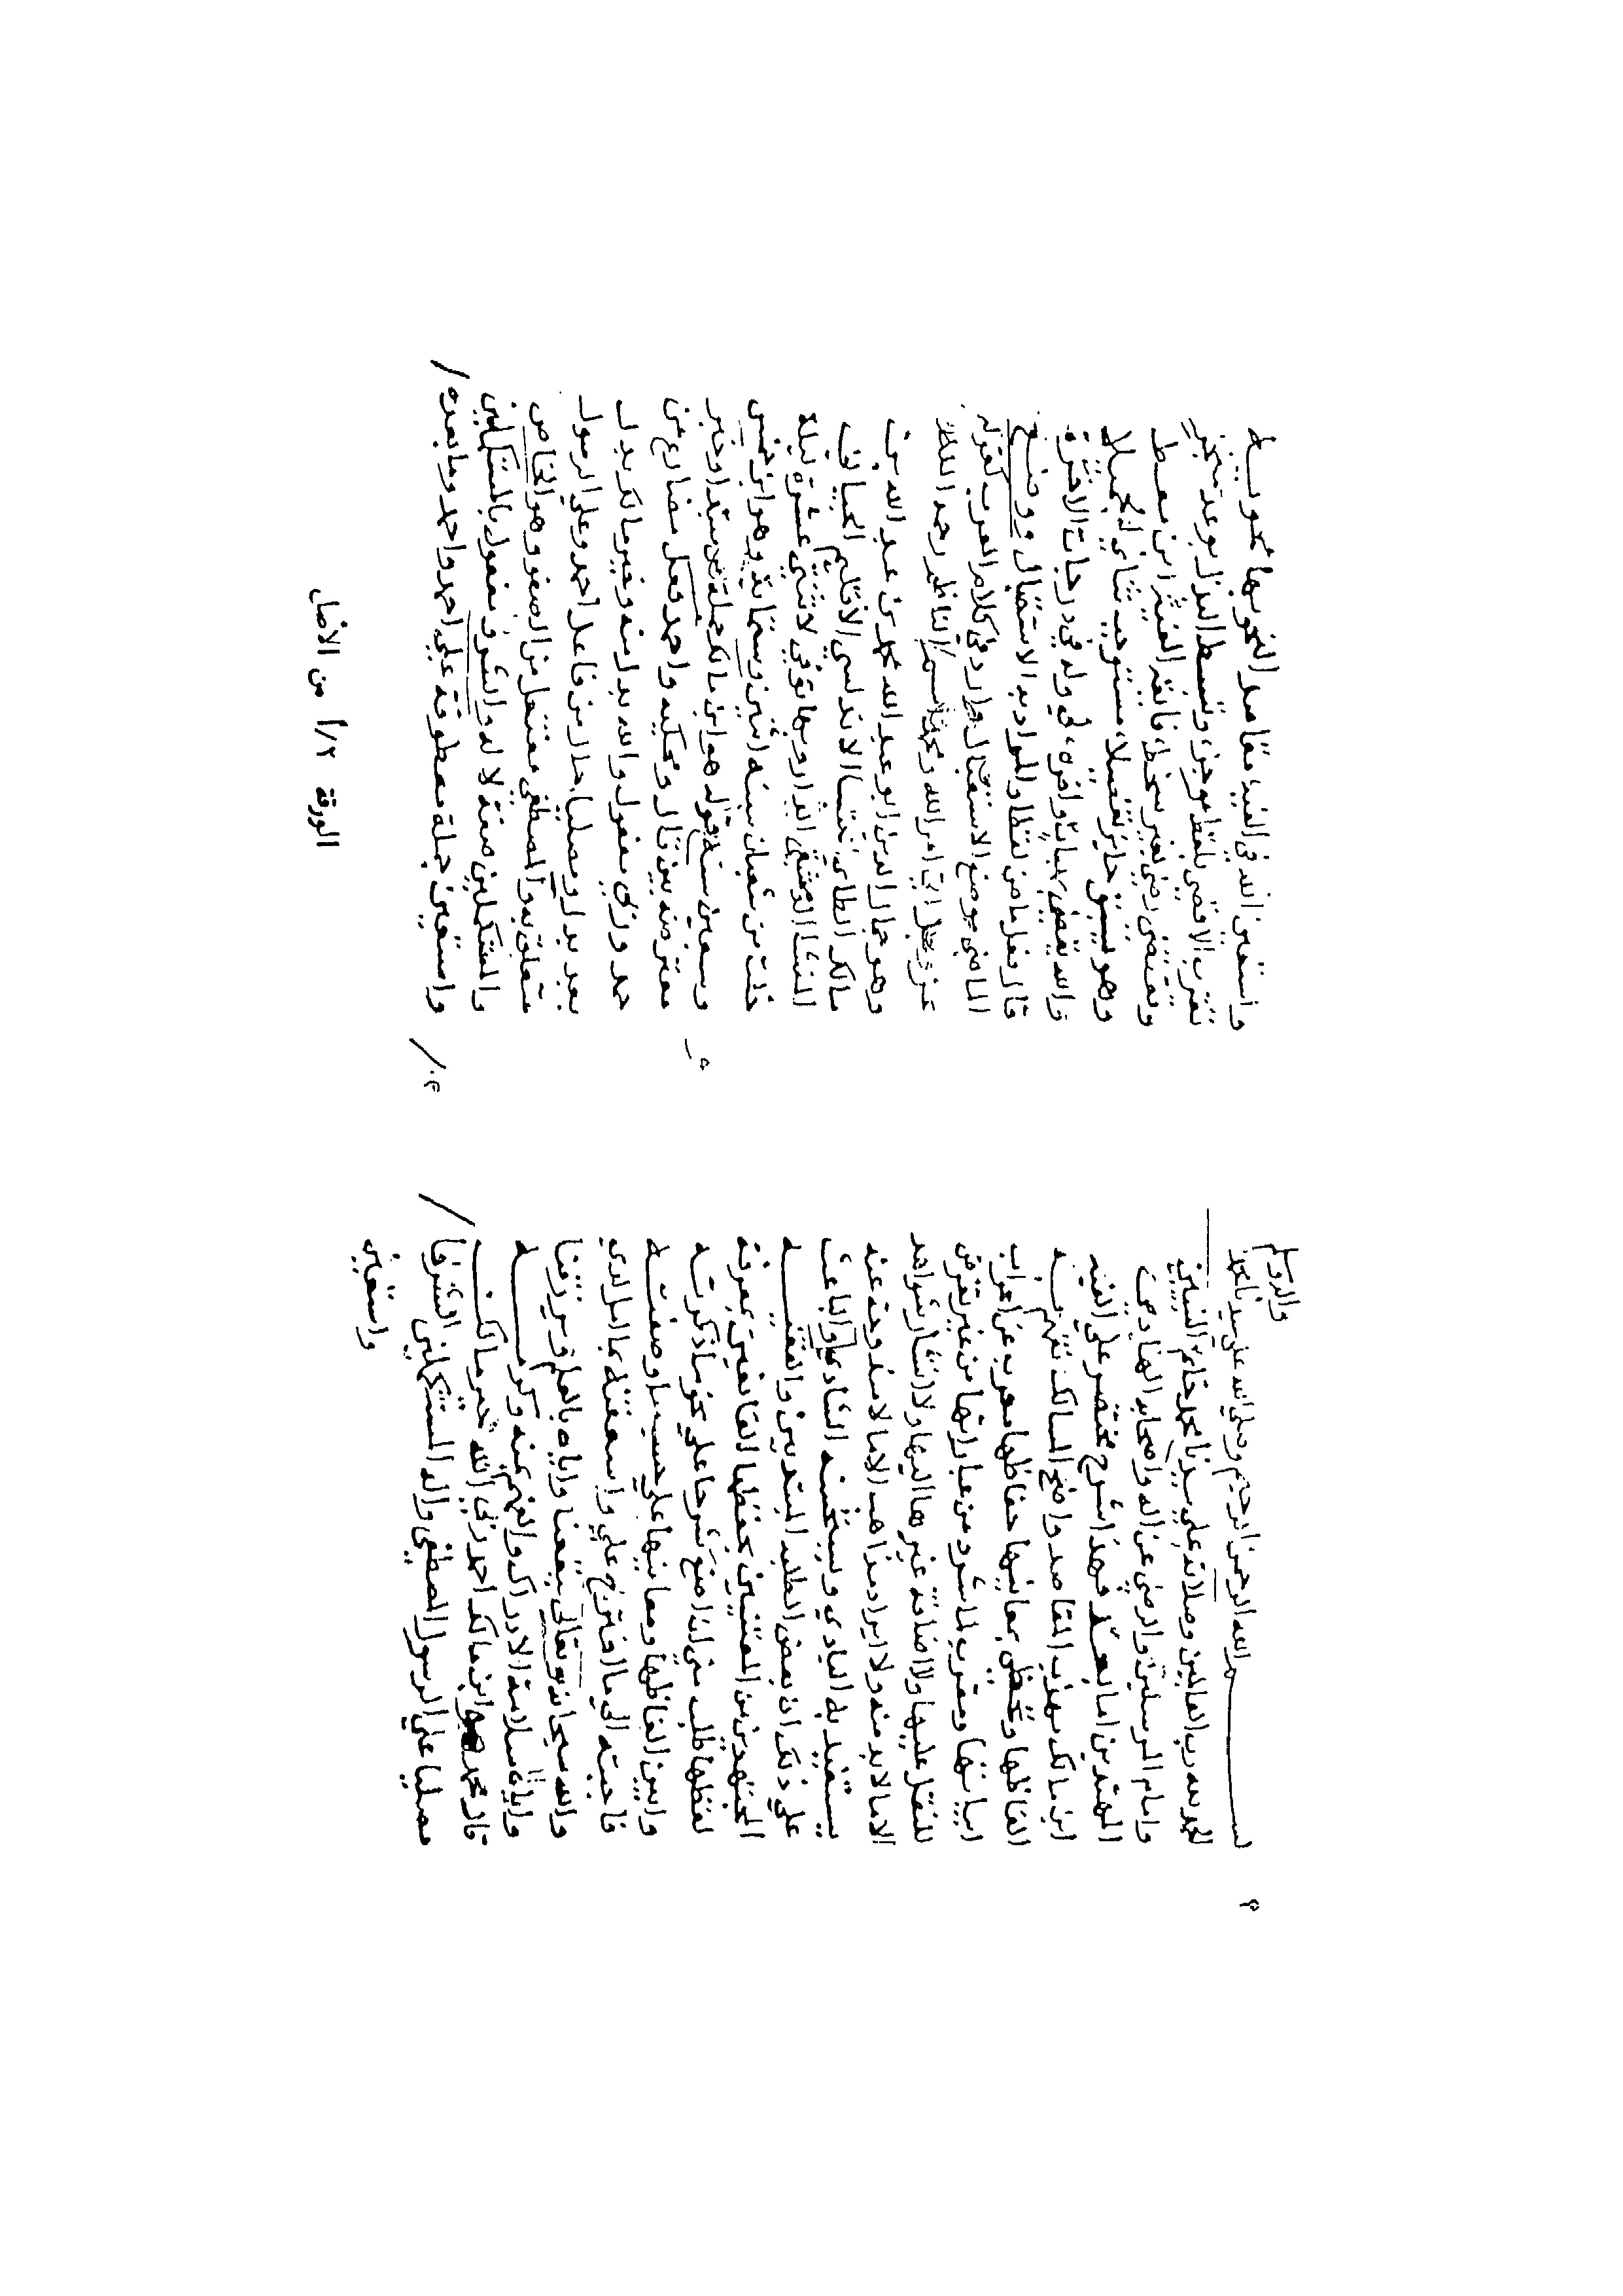 بسم الله الرحمن الرحيم وصلى الله على سيدنا محمد
واله وسلم
الحمد لله رب العالمين وصلاته على سيدنا محمد خاتم النبيين
وامام المرسلين والرضى عن اله واصحابه الهادين
المهتدين اما بعد فهذا شرح مختصر على الفية
ابن مالك مهذب المقاصد واضح المسالك تفهم به
الفاظها وتحظى بمعانيها حفاظها معرب عن اعراب
ابياتها ومقرب لما شرد من عباراتها من غير تعرض
للنقل عليها ولا اضافة غيرها اليها ولا انشاد شواهد
الا ما لا بد منه ولا ايراد مذاهب الا ما لا مندوحة عنه
يستفيد به البادي ويستحسنه الشادي والباعث
على ذلك ان بعض الطلبة المبتدين والفتية
المجتهدين من المعتنين بحفظها القانعين بمعرفة
لفظها طلب مني ان اضع شرحا على نحو ما ذكرته
وابين الفاظها ومعانيها على حسب ما وصفته
فاجبته الى ما اقترح علي واسعفته بما امل لدي
والله سبحانه وتعالى ينفعنا واياه بالعلم ويرزقنا
واياه سلامة الادراك والفهم بمنه وكرمه
قال محمد هو ابن مالك احمد ربي الله خير مالك
مصليا على الرسول المصطفى واله المستكملين الشرفا
واستعين
واستعين الله في الفيه مقاصد النحو بها محويه
تقرب الاقصى بلفظ موجز وتبسط البذل بوعد منجز
وتقتضي رضى بغير سخط فايقة الفية ابن معط
وهو بسبق حايز تفضيلا مستوجب ثناي الجميلا
والله يقضي بهبات وافره لي وله في درجات الاخره
قال فعل ماض لفظا والمراد به الاستقبال ووضع
الماضي موضع الاستقبال وارد في كلام العرب كقوله
عز وجل اتى امر الله ومحمد اسم الناظم رحمه الله
وهو جمال الدين ابو عبد الله محمد بن عبد الله بن
مالك الطائ نسبا الاندلسي الاقليم الجياني
المنشا الدمشقي الدار وبها توفي لاثنتي عشرة ليلة
خلت من شعبان سنة اثنين وستمائة وهو ابن خمس
وسبعين سنة قوله هو ابن مالك جملة من مبتدا وخبر
معترضة بين قال ومحكيه واحمد فعل مضارع من
حمد وربي مفعول والله بدل منه وخير مالك بدل
بعد بدل ومصليا حال من فاعل احمد وعلى الرسول
متعلق به والمصطفى مفتعل من الصفو وهو الخالص
والمستكملين صفة لاله والشرف مفعول بالمستكملين
واستعين جملة معطوفة على احمد وما بعده
الورقة ٢/أ من الأصل